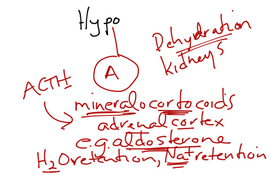 Hypo
Dehydration
Kidneys
A
ACTH
mineralocortocoids
adrenal cortex
e.g. aldosterone
H2O retention, Na+ retention